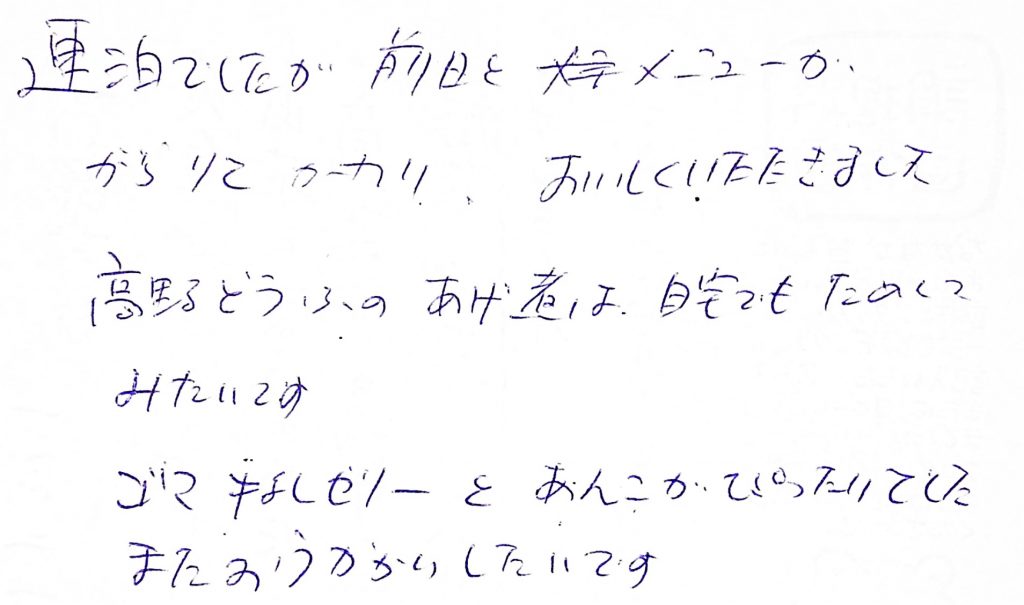 連泊でしたが 前日と メニューが
がらりと かわり、おいしくいただきました
高野どうふの あげ煮は 自宅でも ためして
みたいです
ゴマ ゼリーと あんこが ぴったりでした
また おうかがいしたいです